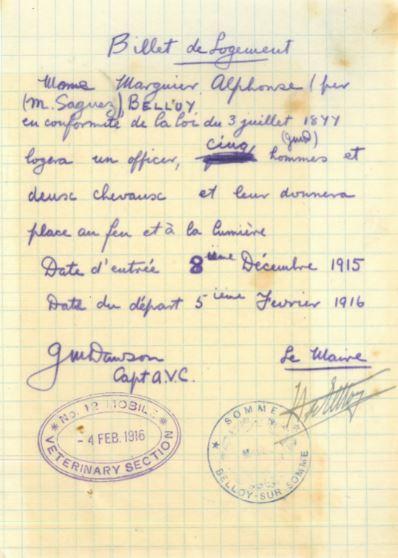 Billet de Logement
Mome Marquier Alphonse (per
(M. Saguez) BELLOY
en conformité de la loi du 3 juillet 1877
logera un officer, cinq (GMD) hommes et
deux chevaux et leur donnera
place au feu et à la lumière
Date d'entrée 8 ième Décembre 1915
Date du départ 5 ième Fevrier 1916
GMDawson
Capt A.V.C.
Le Maire
No. 12 MOBILE
- 4 FEB. 1916
VETERINARY SECTION
SOMME
BELLOY-SUR-SOMME